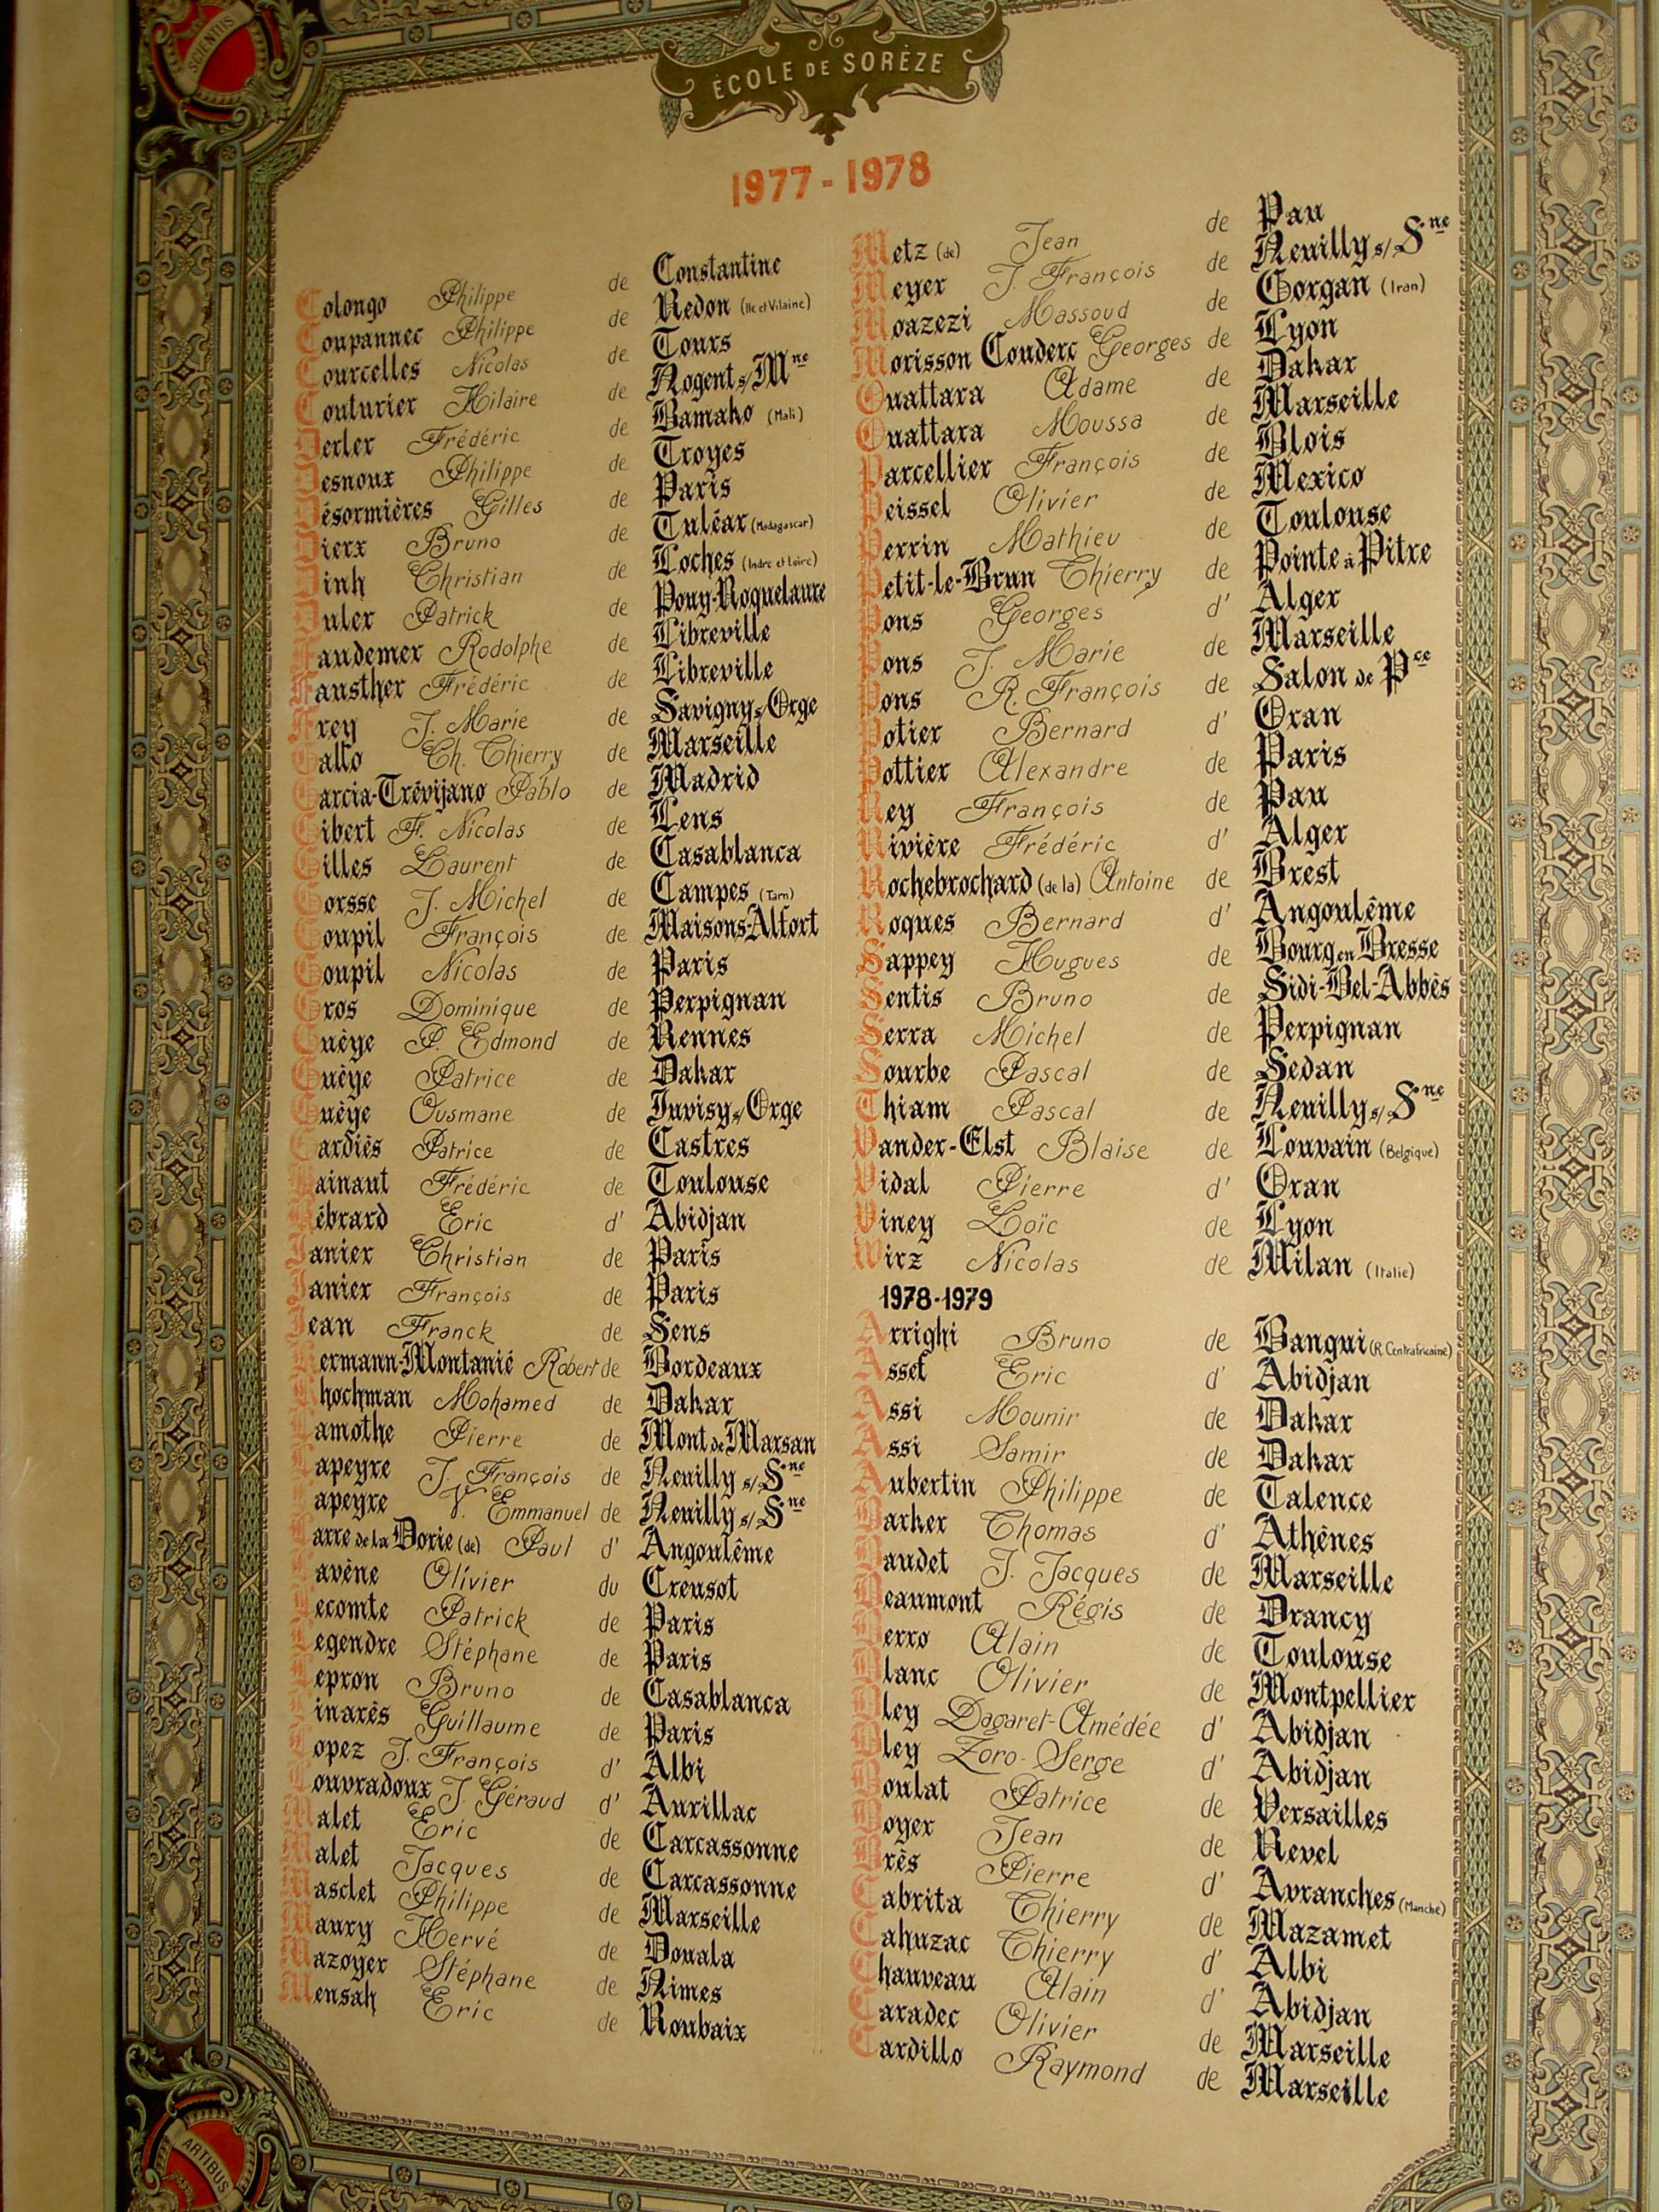 SCIENTIIS
ÉCOLE DE SORÈZE
1977-1978
Colongo Philippe de Constantine
Coupannec Philippe de Redon (Ile et Vilaine)
Courcelles Nicolas de Tours
Couturier Hilaire de Nogent s/ Mne
Derler Frédéric de Bamako (Mali)
Desnoux Philippe de Troyes
Désormières Gilles de Paris
Dierx Bruno de Tuléar (Madagascar)
Dinh Christian de Loches (Indre et Loire)
Duler Patrick de Pouy-Roquelaure
Faudemer Rodolphe de Libreville
Fausther Frédéric de Libreville
Frey J. Marie de Savigny s/ Orge
Gallo Ch. Thierry de Marseille
Garcia-Trévijano Pablo de Madrid
Gibert F. Nicolas de Lens
Gilles Laurent de Casablanca
Gorsse J. Michel de Campes (Tarn)
Goupil François de Maisons-Alfort
Goupil Nicolas de Paris
Gros Dominique de Perpignan
Guèye P. Edmond de Rennes
Guèye Patrice de Dakar
Guèye Ousmane de Juvisy s/ Orge
Gardiès Patrice de Castres
Hainaut Frédéric de Toulouse
Hébrard Eric d' Abidjan
Janier Christian de Paris
Janier François de Paris
Jean Franck de Sens
Kermann-Montanié Robert de Bordeaux
Khochman Mohamed de Dakar
Lamothe Pierre de Mont de Marsan
Lapeyre J. François de Neuilly s/ Sne
Lapeyre V. Emmanuel de Neuilly s/ Sne
Larre de la Dorie (de) Paul d' Angoulême
Lavène Olivier du Creusot
Lecomte Patrick de Paris
Legendre Stéphane de Paris
Lepron Bruno de Casablanca
Linarès Guillaume de Paris
Lopez J. François d' Albi
Louvradoux J. Géraud d' Aurillac
Malet Eric de Carcassonne
Malet Jacques de Carcassonne
Masclet Philippe de Marseille
Maury Hervé de Douala
Mazoyer Stéphane de Nimes
Mensah Eric de Roubaix
Metz (de) Jean de Pau
Meyer J. François de Neuilly s/ Sne
Moazezi Massoud de Gorgan (Iran)
Morisson Couderc Georges de Lyon
Ouattara Adame de Dakar
Ouattara Moussa de Marseille
Parcellier François de Blois
Peissel Olivier de Mexico
Perrin Mathieu de Toulouse
Petit-le-Brun Thierry de Pointe à Pitre
Pons Georges d' Alger
Pons J. Marie de Marseille
Pons R. François de Salon de Pce
Potier Bernard d' Oran
Pottier Alexandre de Paris
Rey François de Pau
Rivière Frédéric d' Alger
Rochebrochard (de la) Antoine de Brest
Roques Bernard d' Angoulême
Sappey Hugues de Bourg en Bresse
Sentis Bruno de Sidi-Bel-Abbès
Serra Michel de Perpignan
Sourbe Pascal de Sedan
Thiam Pascal de Neuilly s/ Sne
Vander-Elst Blaise de Louvain (Belgique)
Vidal Pierre d' Oran
Viney Loïc de Lyon
Wirz Nicolas de Milan (Italie)
1978-1979
Arrighi Bruno de Bangui (R. Centrafricaine)
Assef Eric d' Abidjan
Assi Mounir de Dakar
Assi Samir de Dakar
Aubertin Philippe de Talence
Barker Thomas d' Athènes
Baudet J. Jacques de Marseille
Beaumont Régis de Drancy
Berro Alain de Toulouse
Blanc Olivier de Montpellier
Bley Dagaret-Amédée d' Abidjan
Bley Zoro-Serge d' Abidjan
Boulat Patrice de Versailles
Boyer Jean de Revel
Brès Pierre d' Avranches (Manche)
Cabrita Thierry de Mazamet
Cahuzac Thierry d' Albi
Chauveau Alain d' Abidjan
Caradec Olivier de Marseille
Cardillo Raymond de Marseille
ARTIBUS